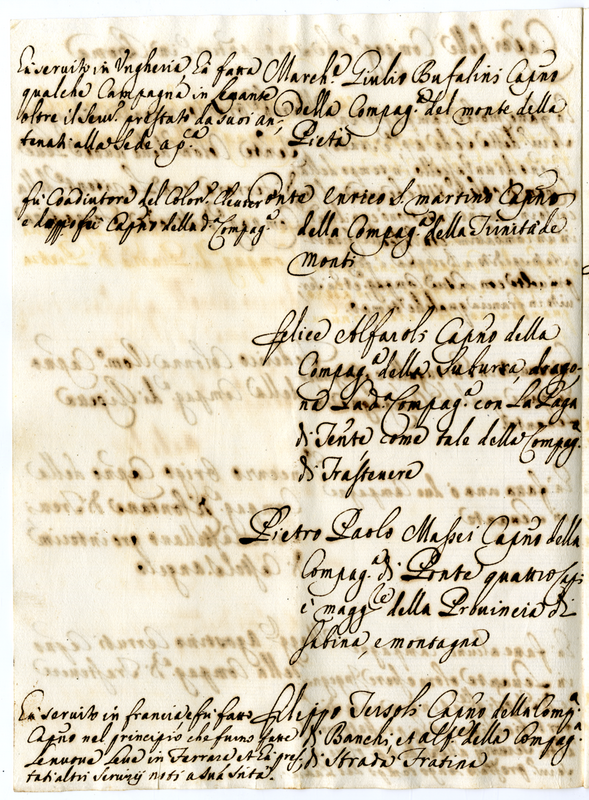 Ha servito in Ungheria, Ha fatta
qualche Campagna in Levante
oltre il Serv.º prestato da suoi an-
tenati alla Sede ap.ca
March.e Giulio Bufalini Capño
della Compag.a del monte della
Pietà
fu Coadiutore del Colon.
e doppo fu Capño della d.a Compag.a
Conte Enrico S. martino Capño
della Compag.a della Trinità de
Monti
Felice Alfaroli Capño della
Compag.a della Suburra, drago-
na La d.a Compag.a con La Paga
di Teñte come tale della Compag.a
di Trastevere
Pietro Paolo Massei Capño della
Compag.a di Ponte quattro Capi
e magg.re della Provincia di
Sabina, e montagna
Ha servito in francia e fu fatto
Capño nel principio che furno fatte
Le nuove Leve in Ferrara et Ha pres-
tati altri Servizij noti a sua Sñtà.
Filippo Tersoli Capño della Comp.a
di Banchi, et Alf.e della Compag.a
di Strada Fratina